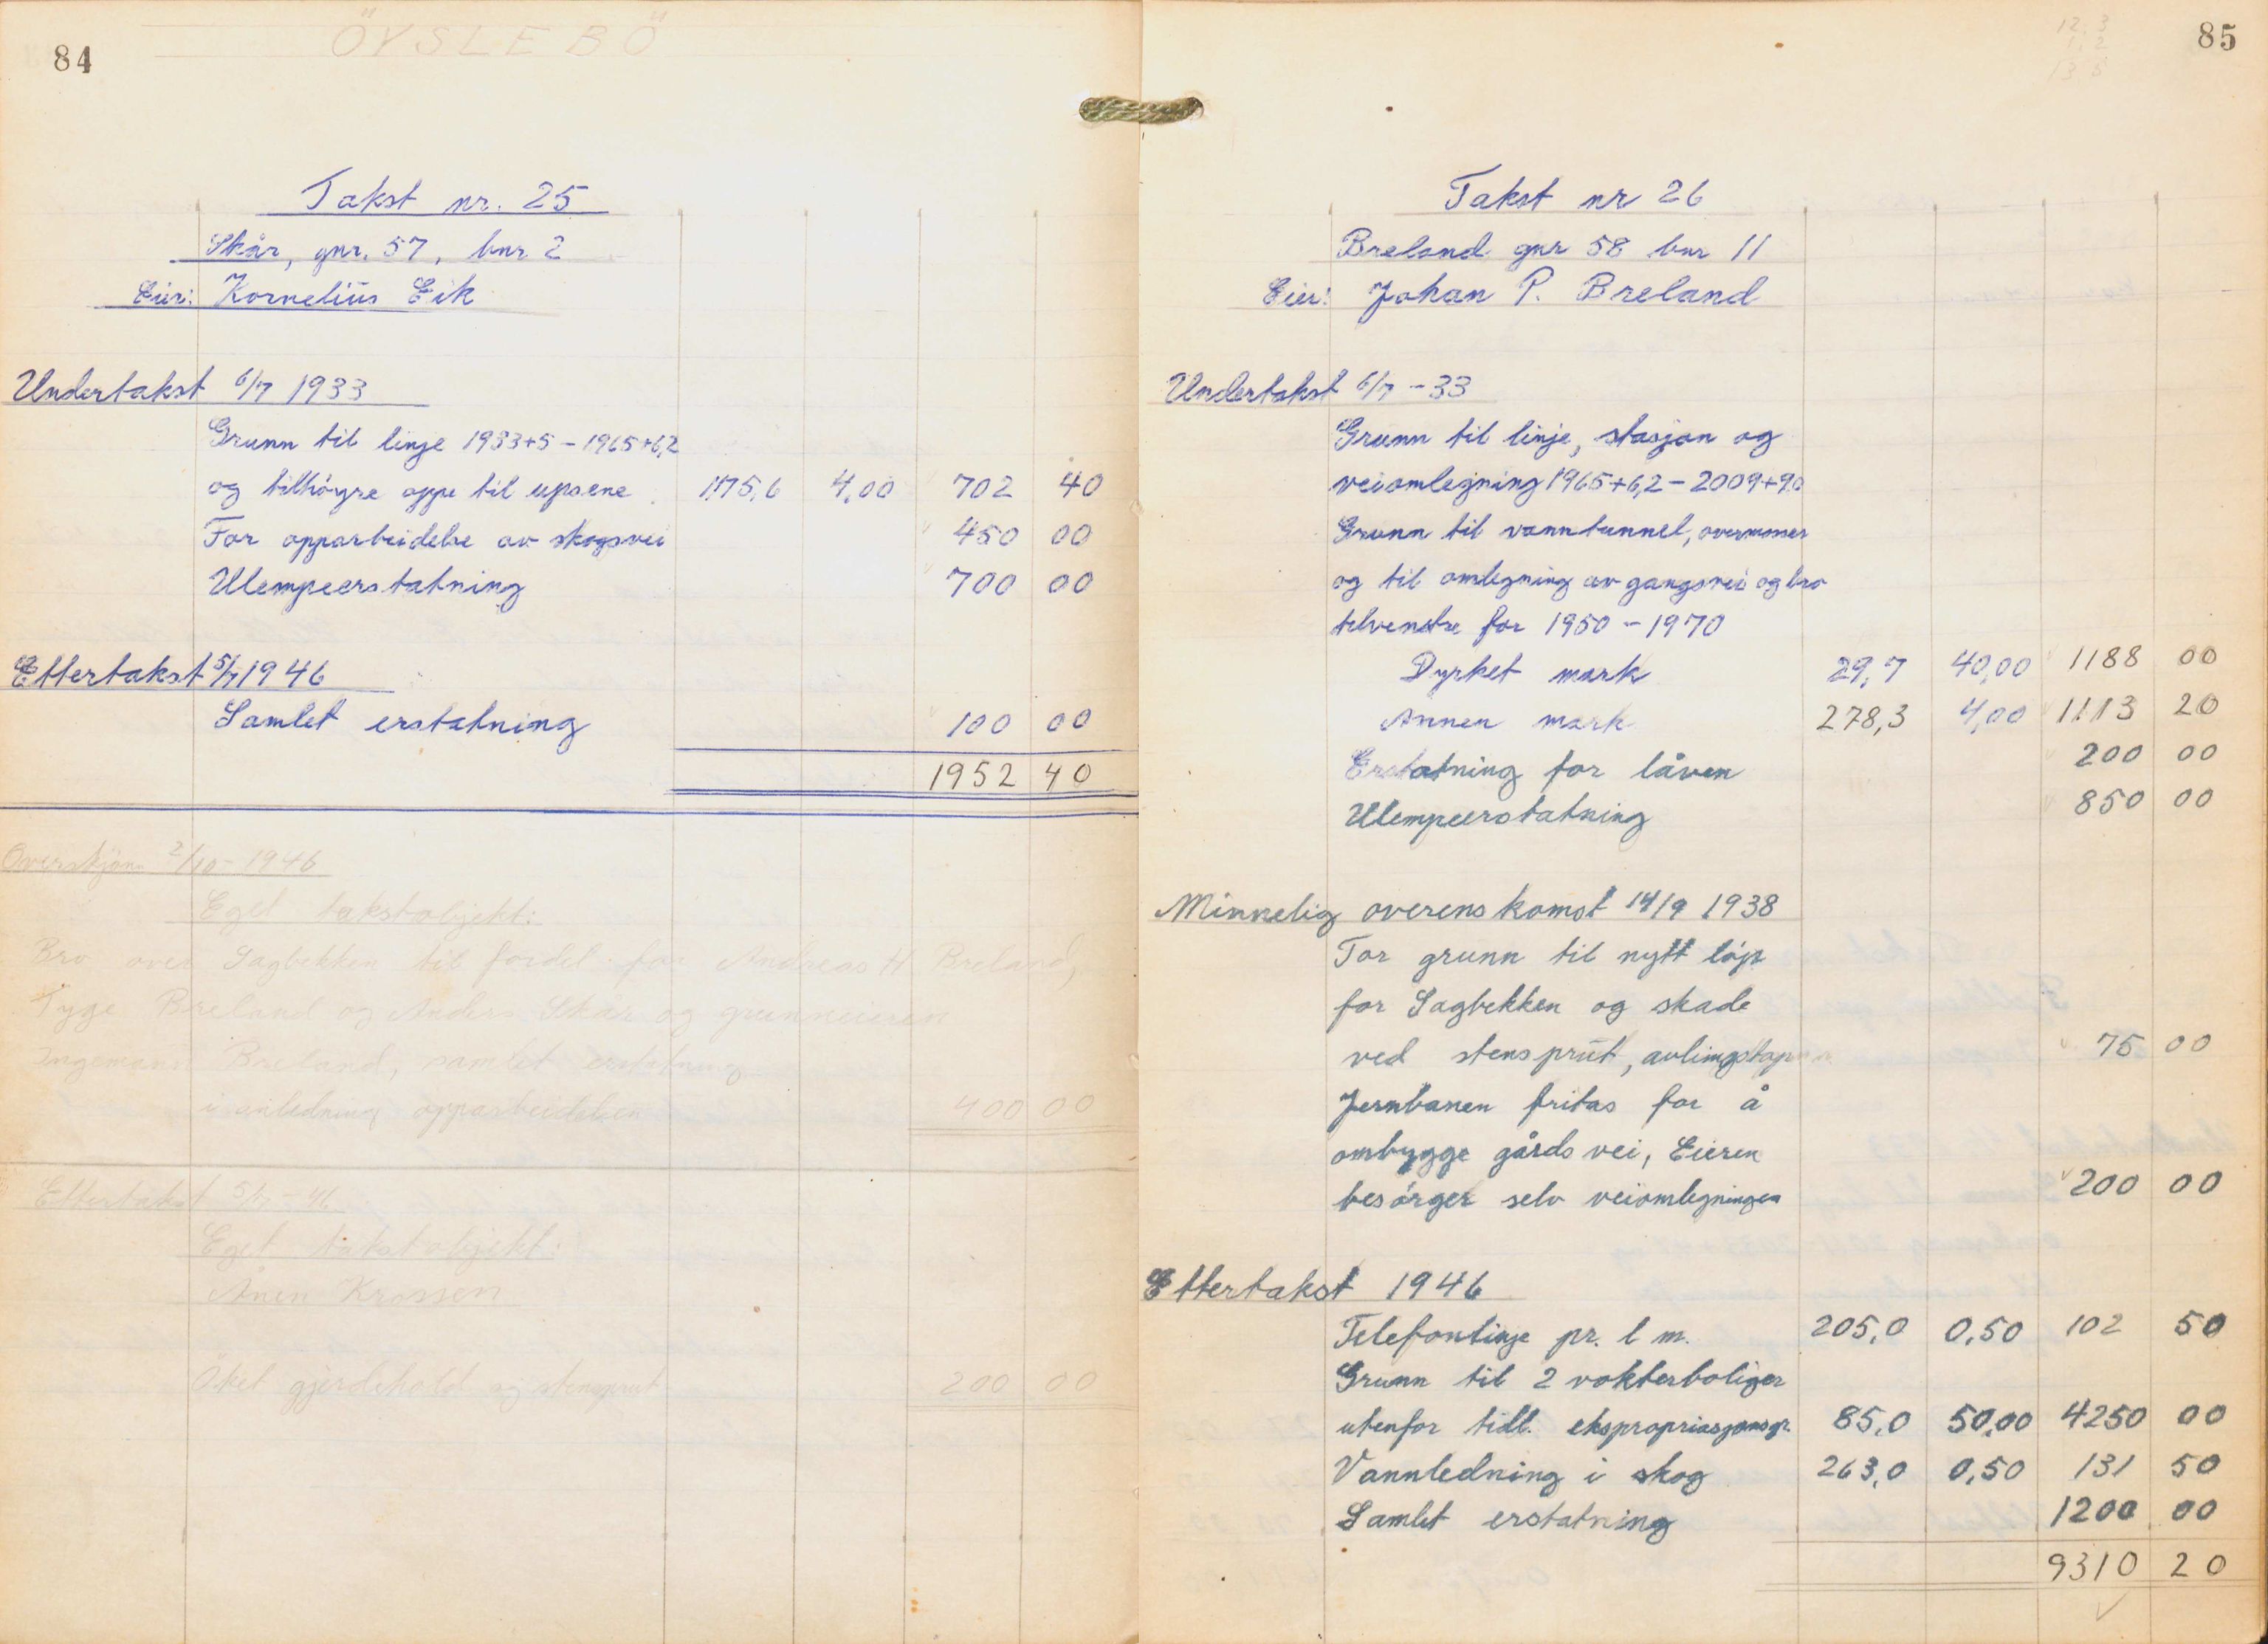 84
ÖYSLEBÖ
Takst nr. 25
Skår, gnr. 57, bnr 2
Eier: Kornelius Eik
Undertakst 6/7 1933
Grunn til linje 1933+5 - 1965+6,2
og tilhöyre oppe til upsene 175,6 4,00 702 40
For opparbeidelse av skogsvei 450 00
Ulempeerstatning 700 00
Ettertakst 5/7 1946
Samlet erstatning 100 00
1952 40
Overskjönn 2/10 - 1946
Eget takstobjekt:
Bro over Sagbekken til fordel for Andreas H Breland,
Tyge Breland og Anders Skår og grunneieren
Ingemann Breland, samlet erstatning
i anledning opparbeidelsen 400 00
Ettertakst 5/7 - 46
Eget takstobjekt:
Ånen Krossen
Öket gjerdehold og stensprut 200 00
85
12.3
1.2
13 5
Takst nr 26
Breland gnr 58 bnr 11
Eier: Johan P. Breland
Undertakst 6/7 - 33
Grunn til linje, stasjon og
veiomlegning 1965+6,2 - 2009+9,0
Grunn til vanntunnel, overmasser
og til omlegning av gangsvei og bro
tilvenstre for 1950 - 1970
Dyrket mark 29,7 40,00 1188 00
Annen mark 278,3 4,00 1113 20
Erstatning for låven 200 00
Ulempeerstatning 850 00
Minnelig overenskomst 14/9 1938
For grunn til nytt löp
for Sagbekken og skade
ved stensprut, avlingstap 75 00
Jernbanen fritas for å
ombygge gårdsvei, Eieren
besörger selv veiomlegningen 200 00
Ettertakst 1946
Telefonlinje pr. l m. 205,0 0,50 102 50
Grunn til 2 vokterboliger
utenfor tidl. ekspropriasjonsgr. 85,0 50,00 4250 00
Vannledning i skog 263,0 0,50 131 50
Samlet erstatning 1200 00
9310 20